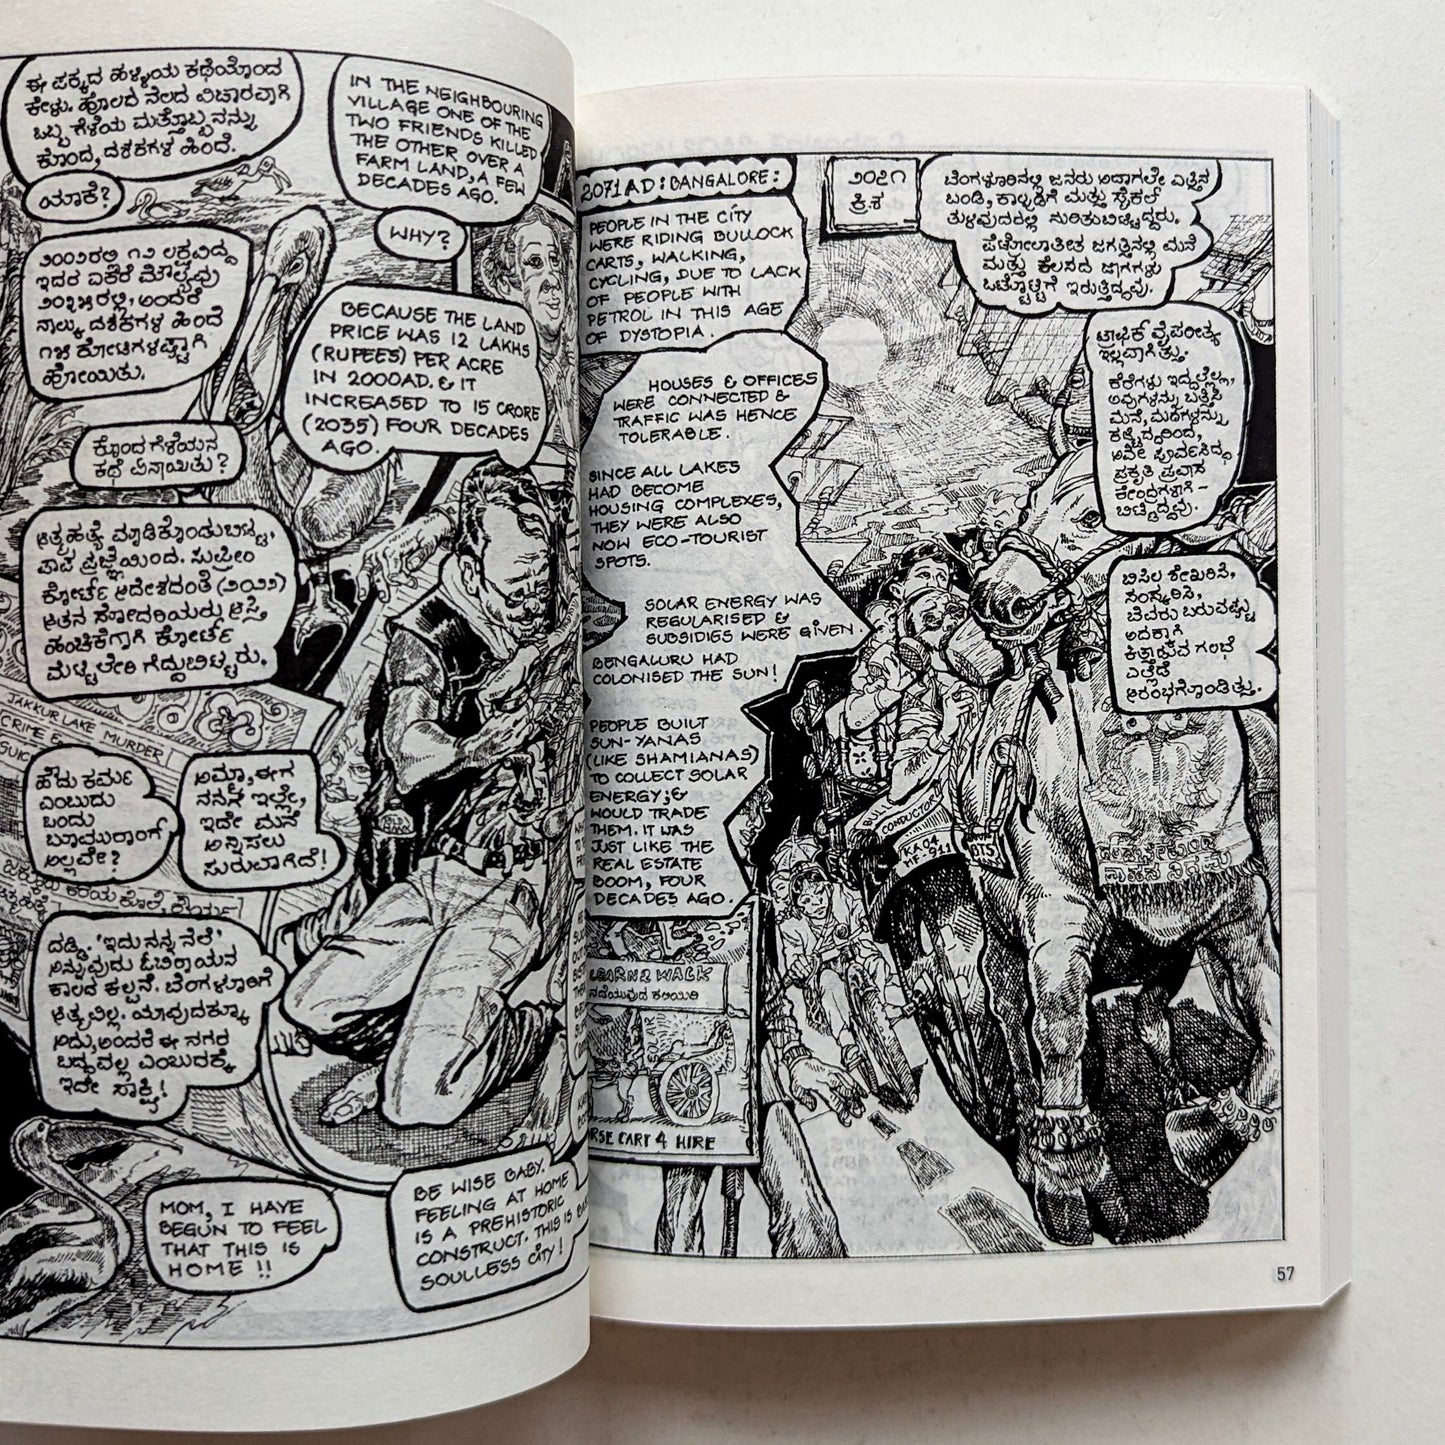 ಈ ಪಕ್ಕದ ಹಳ್ಳಿಯ ಕಥೆಯೊಂದ
ಕೇಳು. ಹೊಲದ ನೆಲದ ವಿಚಾರವಾಗಿ
ಒಬ್ಬ ಗೆಳೆಯ ಮತ್ತೊಬ್ಬನನ್ನು
ಕೊಂದ, ದಶಕಗಳ ಹಿಂದೆ.
ಯಾಕೆ?
೨೦೦೨ರಲ್ಲಿ ೧೨ ಲಕ್ಷವಿದ್ದ
ಇದರ ಎಕೆರೆ ಮೌಲ್ಯವು
೨೦೩೫ರಲ್ಲಿ, ಅಂದರೆ
ನಾಲ್ಕು ದಶಕಗಳ ಹಿಂದೆ
೧೫ ಕೋಟಿಗಳಷ್ಟಾಗಿ
ಹೋಯಿತು.
ಕೊಂದ ಗೆಳೆಯನ
ಕಥೆ ಏನಾಯಿತು?
ಆತ್ಮಹತ್ಯೆ ಮಾಡಿಕೊಂಡುಬಿಟ್ಟ,
ಪಾಪ ಪ್ರಜ್ಞೆಯಿಂದ. ಸುಪ್ರೀಂ
ಕೋರ್ಟ್ ಆದೇಶದಂತೆ (೨೦೨೨)
ಆತನ ಸೋದರಿಯರು ಆಸ್ತಿ
ಹಂಚಿಕೆಗಾಗಿ ಕೋರ್ಟ್
ಮಟ್ಟಿಲೇರಿ ಗೆದ್ದುಬಿಟ್ಟರು.
JAKKUR LAKE MURDER
CRIME &
SUIC
ಹೌದು ಕರ್ಮ
ಎಂಬುದು
ಒಂದು
ಬೂಮರಾಂಗ್
ಅಲ್ಲವೇ?
ಅಮ್ಮಾ, ಈಗ
ನನಗೆ ಇಲ್ಲೇ,
ಇದೇ ಮನೆ
ಅನ್ನಿಸಲು
ಸುರುವಾಗಿದೆ!
ದಡ್ಡಿ. 'ಇದು ನನ್ನ ನೆಲೆ'
ಅನ್ನುವುದು ಓಬಿರಾಯನ
ಕಾಲದ ಕಲ್ಪನೆ. ಬೆಂಗಳೂರಿಗೆ
ಆತ್ಮವಿಲ್ಲ. ಯಾವುದಕ್ಕೂ
ಅದು, ಅಂದರೆ ಈ ನಗರ
ಬದ್ಧವಲ್ಲ ಎಂಬುದಕ್ಕೆ
ಇದೇ ಸಾಕ್ಷಿ!
IN THE NEIGHBOURING
VILLAGE ONE OF THE
TWO FRIENDS KILLED
THE OTHER OVER A
FARM LAND, A FEW
DECADES AGO.
WHY?
BECAUSE THE LAND
PRICE WAS 12 LAKHS
(RUPEES) PER ACRE
IN 2000AD. & IT
INCREASED TO 15 CRORE
(2035) FOUR DECADES
AGO.
MOM, I HAVE
BEGUN TO FEEL
THAT THIS IS
HOME !!
BE WISE BABY.
FEELING AT HOME
IS A PREHISTORIC
CONSTRUCT. THIS IS
SOULLESS CITY!
2071 AD: BANGALORE:
PEOPLE IN THE CITY
WERE RIDING BULLOCK
CARTS, WALKING,
CYCLING, DUE TO LACK
OF PEOPLE WITH
PETROL IN THIS AGE
OF DYSTOPIA.
HOUSES & OFFICES
WERE CONNECTED &
TRAFFIC WAS HENCE
TOLERABLE.
SINCE ALL LAKES
HAD BECOME
HOUSING COMPLEXES,
THEY WERE ALSO
NOW ECO-TOURIST
SPOTS.
SOLAR ENERGY WAS
REGULARISED &
SUBSIDIES WERE GIVEN
BENGALURU HAD
COLONISED THE SUN!
PEOPLE BUILT
SUN-YANAS
(LIKE SHAMIANAS)
TO COLLECT SOLAR
ENERGY; &
WOULD TRADE
THEM. IT WAS
JUST LIKE THE
REAL ESTATE
BOOM, FOUR
DECADES AGO.
೨೦೭೧
ಕ್ರಿ.ಶ
ಬೆಂಗಳೂರಿನಲ್ಲಿ ಜನರು ಅದಾಗಲೇ ಎತ್ತಿನ
ಬಂಡಿ, ಕಾಲ್ನಡಿಗೆ ಮತ್ತು ಸೈಕಲ್
ತುಳಿಯುವುದರಲ್ಲಿ ನುರಿತುಬಿಟ್ಟಿದ್ದರು.
ಪೆಟ್ರೋಲಾತೀತ ಜಗತ್ತಿನಲ್ಲಿ ಮನೆ
ಮತ್ತು ಕೆಲಸದ ಜಾಗಗಳು
ಒಟ್ಟೊಟ್ಟಿಗೆ ಇರುತ್ತಿದ್ದವು.
ಟ್ರಾಫಿಕ್ ವೈಪರೀತ್ಯ
ಇಲ್ಲವಾಗಿತ್ತು.
ಕೆರೆಗಳು ಇದ್ದಲ್ಲೆಲ್ಲಾ,
ಅವುಗಳನ್ನು ಬತ್ತಿಸಿ
ಮನೆ, ಮಠಗಳನ್ನು
ಕಟ್ಟಿದ್ದರಿಂದ,
ಅವೇ ಪೂರ್ವನಿಸಿದ್ಧ
ಪ್ರಕೃತಿ ಪ್ರವಾಸ
ಕೇಂದ್ರಗಳಾಗಿ-
ಬಿಟ್ಟಿದ್ದವು.
ಬಿಸಿಲ ಶೇಖರಿಸಿ,
ಸಂಸ್ಕರಿಸಿ,
ಬೆವರು ಬರುವಷ್ಟು
ಅದಕ್ಕಾಗಿ
ಕಿತ್ತಾಡುವ ಗಲಭೆ
ಎಲ್ಲೆಡೆ
ಆರಂಭಗೊಂಡಿತ್ತು.
CONDUCTOR
KA04
MF-911
LEARN 2 WALK
ನಡೆಯುವುದ ಕಲಿಯಿರಿ
SOLAR
RSE CART 4 HIRE
57